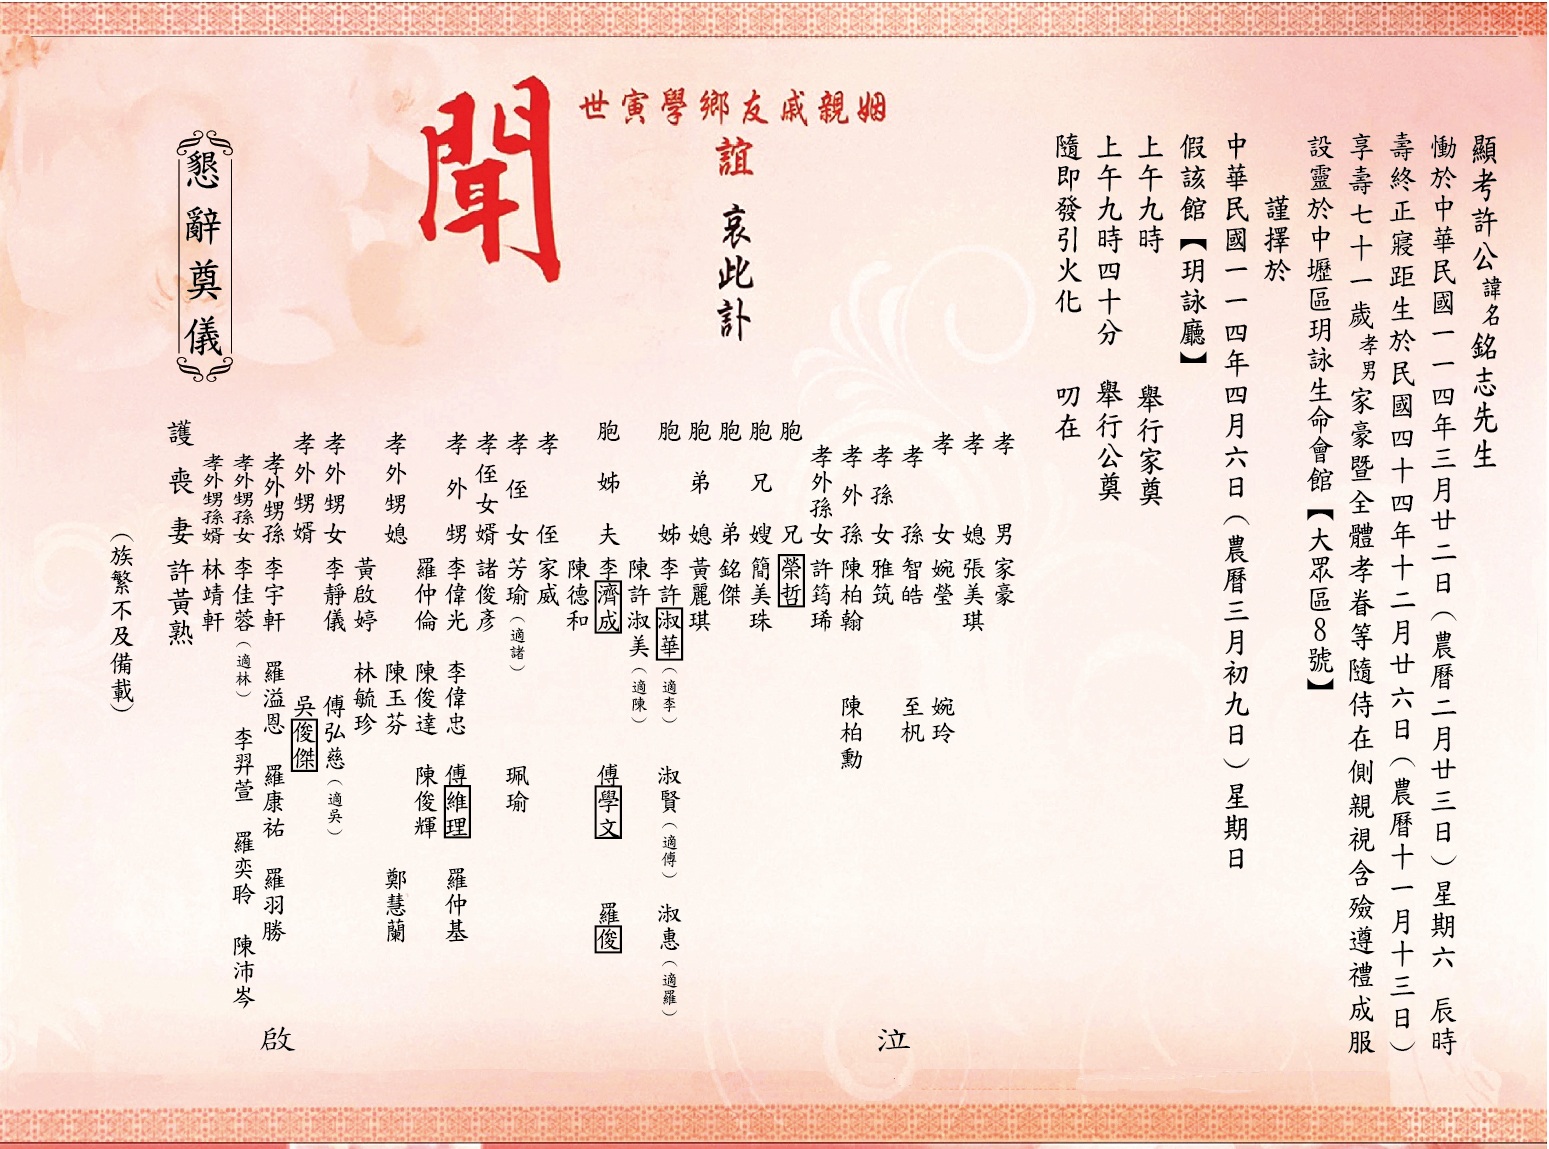 顯考許公諱名銘志先生
慟於中華民國一一四年三月廿二日(農曆二月廿三日)星期六 辰時
壽終正寢距生於民國四十四年十二月廿六日(農曆十一月十三日)
享壽七十一歲孝男家豪暨全體孝眷等隨侍在側親視含殮遵禮成服
設靈於中壢區玥詠生命會館【大眾區8號】
謹擇於
中華民國一一四年四月六日(農曆三月初九日)星期日
假該館【玥詠廳】
上午九時 舉行家奠
上午九時四十分 舉行公奠
隨即發引火化 叨在
姻親戚友鄉學寅世
誼 哀此訃
聞
孝男 家豪
孝媳 張美琪
孝女 婉瑩 婉玲
孝孫 智皓 至杋
孝孫女 雅筑
孝外孫 陳柏翰 陳柏勳
孝外孫女 許筠琋
胞兄 榮哲
胞兄嫂 簡美珠
胞弟 銘傑
胞弟媳 黃麗琪
胞姊 李許淑華(適李) 淑賢(適傅) 淑惠(適羅)
陳許淑美(適陳)
胞姊夫 李濟成 傅學文 羅俊
陳德和
孝侄 家威
孝侄女 芳瑜(適諸) 珮瑜
孝侄女婿 諸俊彥
孝外甥 李偉光 李偉忠 傅維理 羅仲基
羅仲倫 陳俊達 陳俊輝
孝外甥媳 陳玉芬 鄭慧蘭
黃啟婷 林毓珍
孝外甥女 李靜儀 傅弘慈(適吳)
孝外甥婿 吳俊傑
孝外甥孫 李宇軒 羅溢恩 羅康祐 羅羽勝
孝外甥孫女 李佳蓉(適林) 李羿萱 羅奕聆 陳沛岑
孝外甥孫婿 林靖軒
護喪妻 許黃熟
泣
啟
(族繁不及備載)
懇辭奠儀